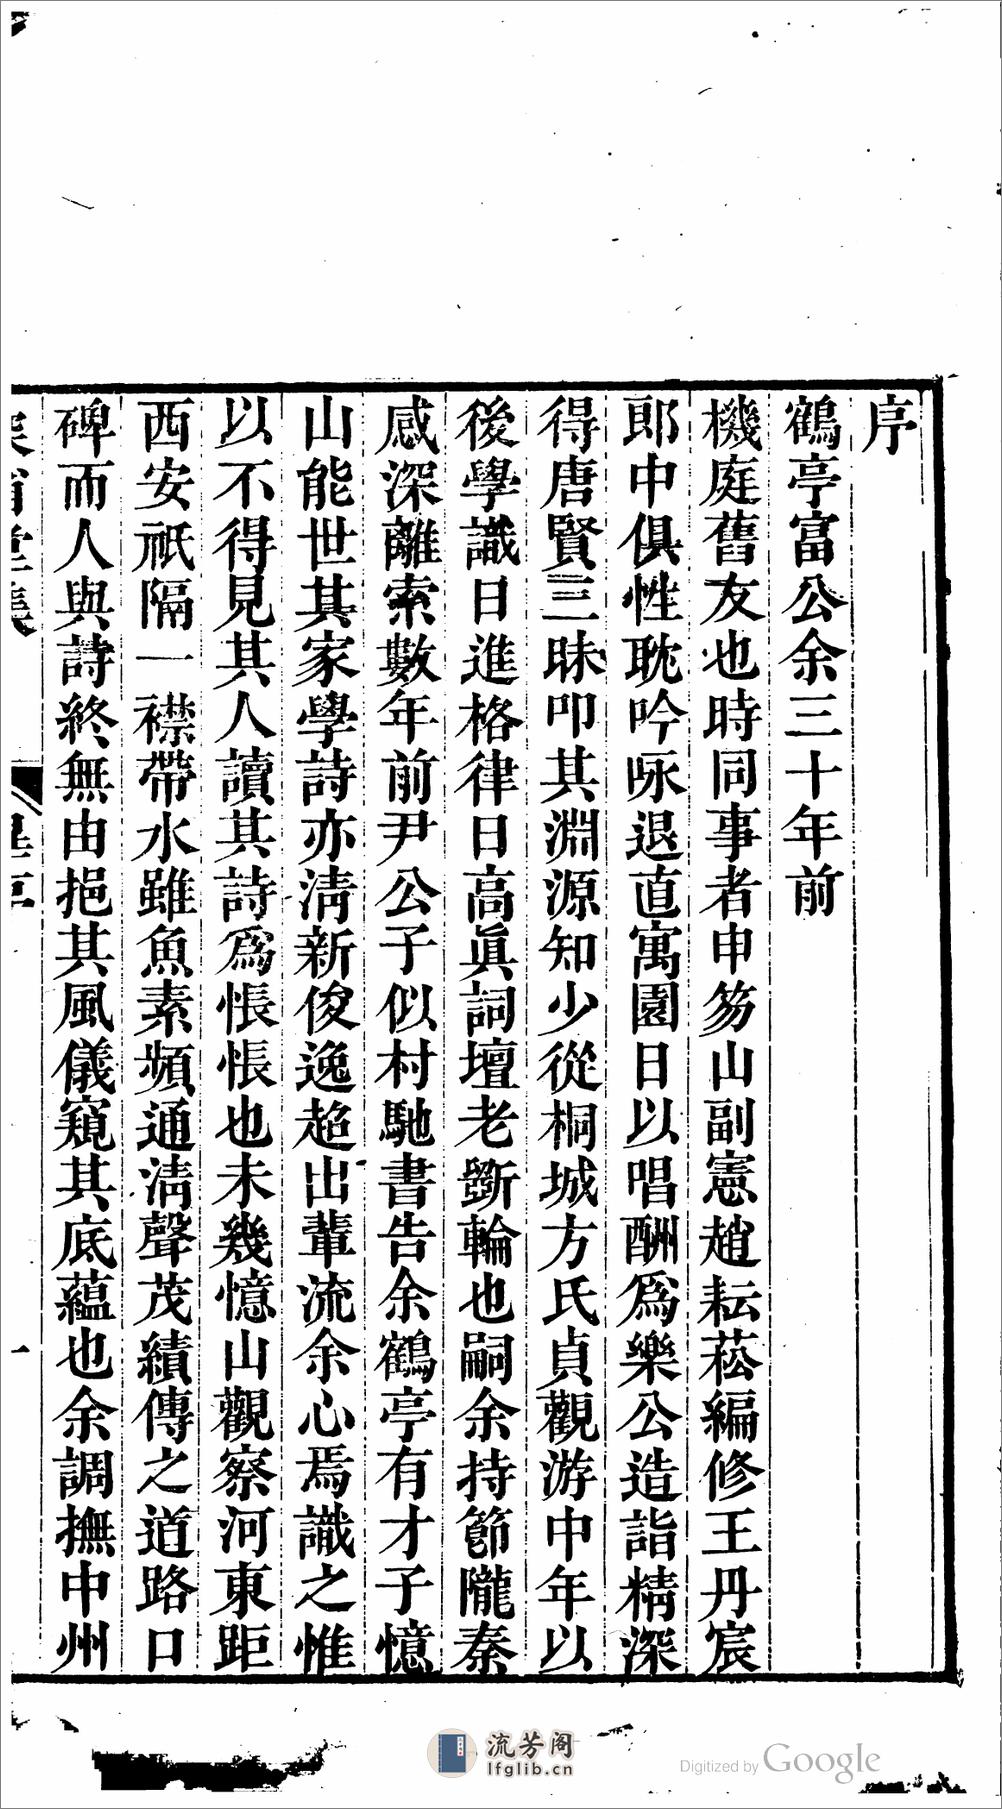 序
鶴亭富公余三十年前
機庭舊友也時同事者申笏山副憲趙耘菘編修王丹宸
郎中俱性耽吟咏退直寓園日以唱酬爲樂公造詣精深
得唐賢三昧叩其淵源知少從桐城方氏貞觀游中年以
後學識日進格律日高眞詞壇老斵輪也嗣余持節隴秦
感深離索數年前尹公子似村馳書告余鶴亭有才子憶
山能世其家學詩亦清新俊逸超出輩流余心焉識之惟
以不得見其人讀其詩爲悵悵也未幾憶山觀察河東距
西安祇隔一襟帶水雖魚素頻通清聲茂績傳之道路口
碑而人與詩終無由挹其風儀窺其底蘊也余調撫中州
一
流芳阁
lfglib.cn
Digitized by Google